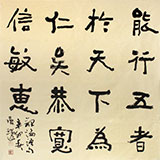 能行五者
於天下為
仁矣恭寬
信敏惠